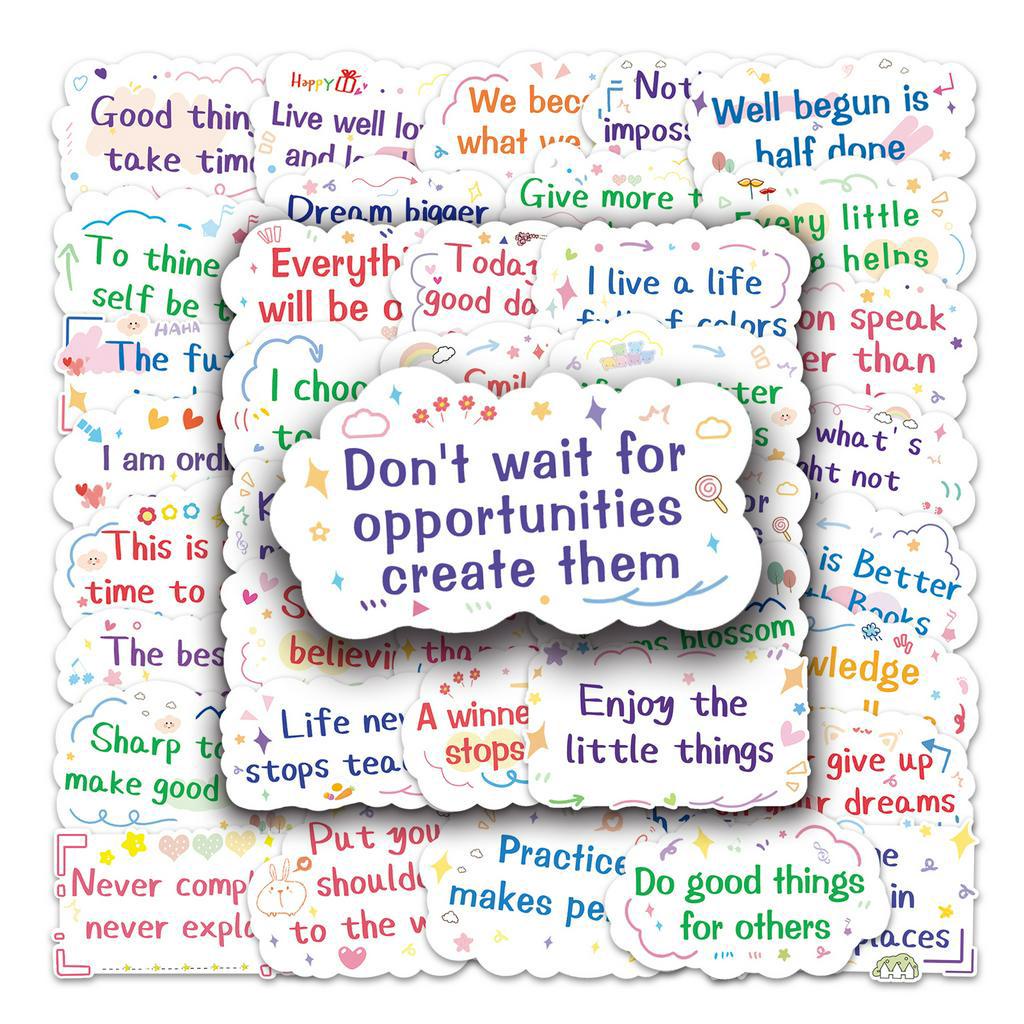 Good thin
take time
Happy
Live well lo
and l
We bec
what we
Not
imposs
Well begun is
half done
Dream bigger
Give more t
Every little
helps
To thine
self be t
Everyth
will be o
Toda
good da
I live a life
full of colors
on speak
er than
HAHA
The fu
I choo
to
Smil
tter
s
I am ordi
what's
ht not
Don't wait for
opportunities
create them
K
or
This is
time to
is Better
Books
The bes
S
believi
tha
ms blossom
wledge
Sharp to
make good
Life nev
stops tea
A winne
stops
Enjoy the
little things
give up
r dreams
Never comp
never expla
Put you
shoulde
to the w
Practice
makes pe
Do good things
for others
e
in
places